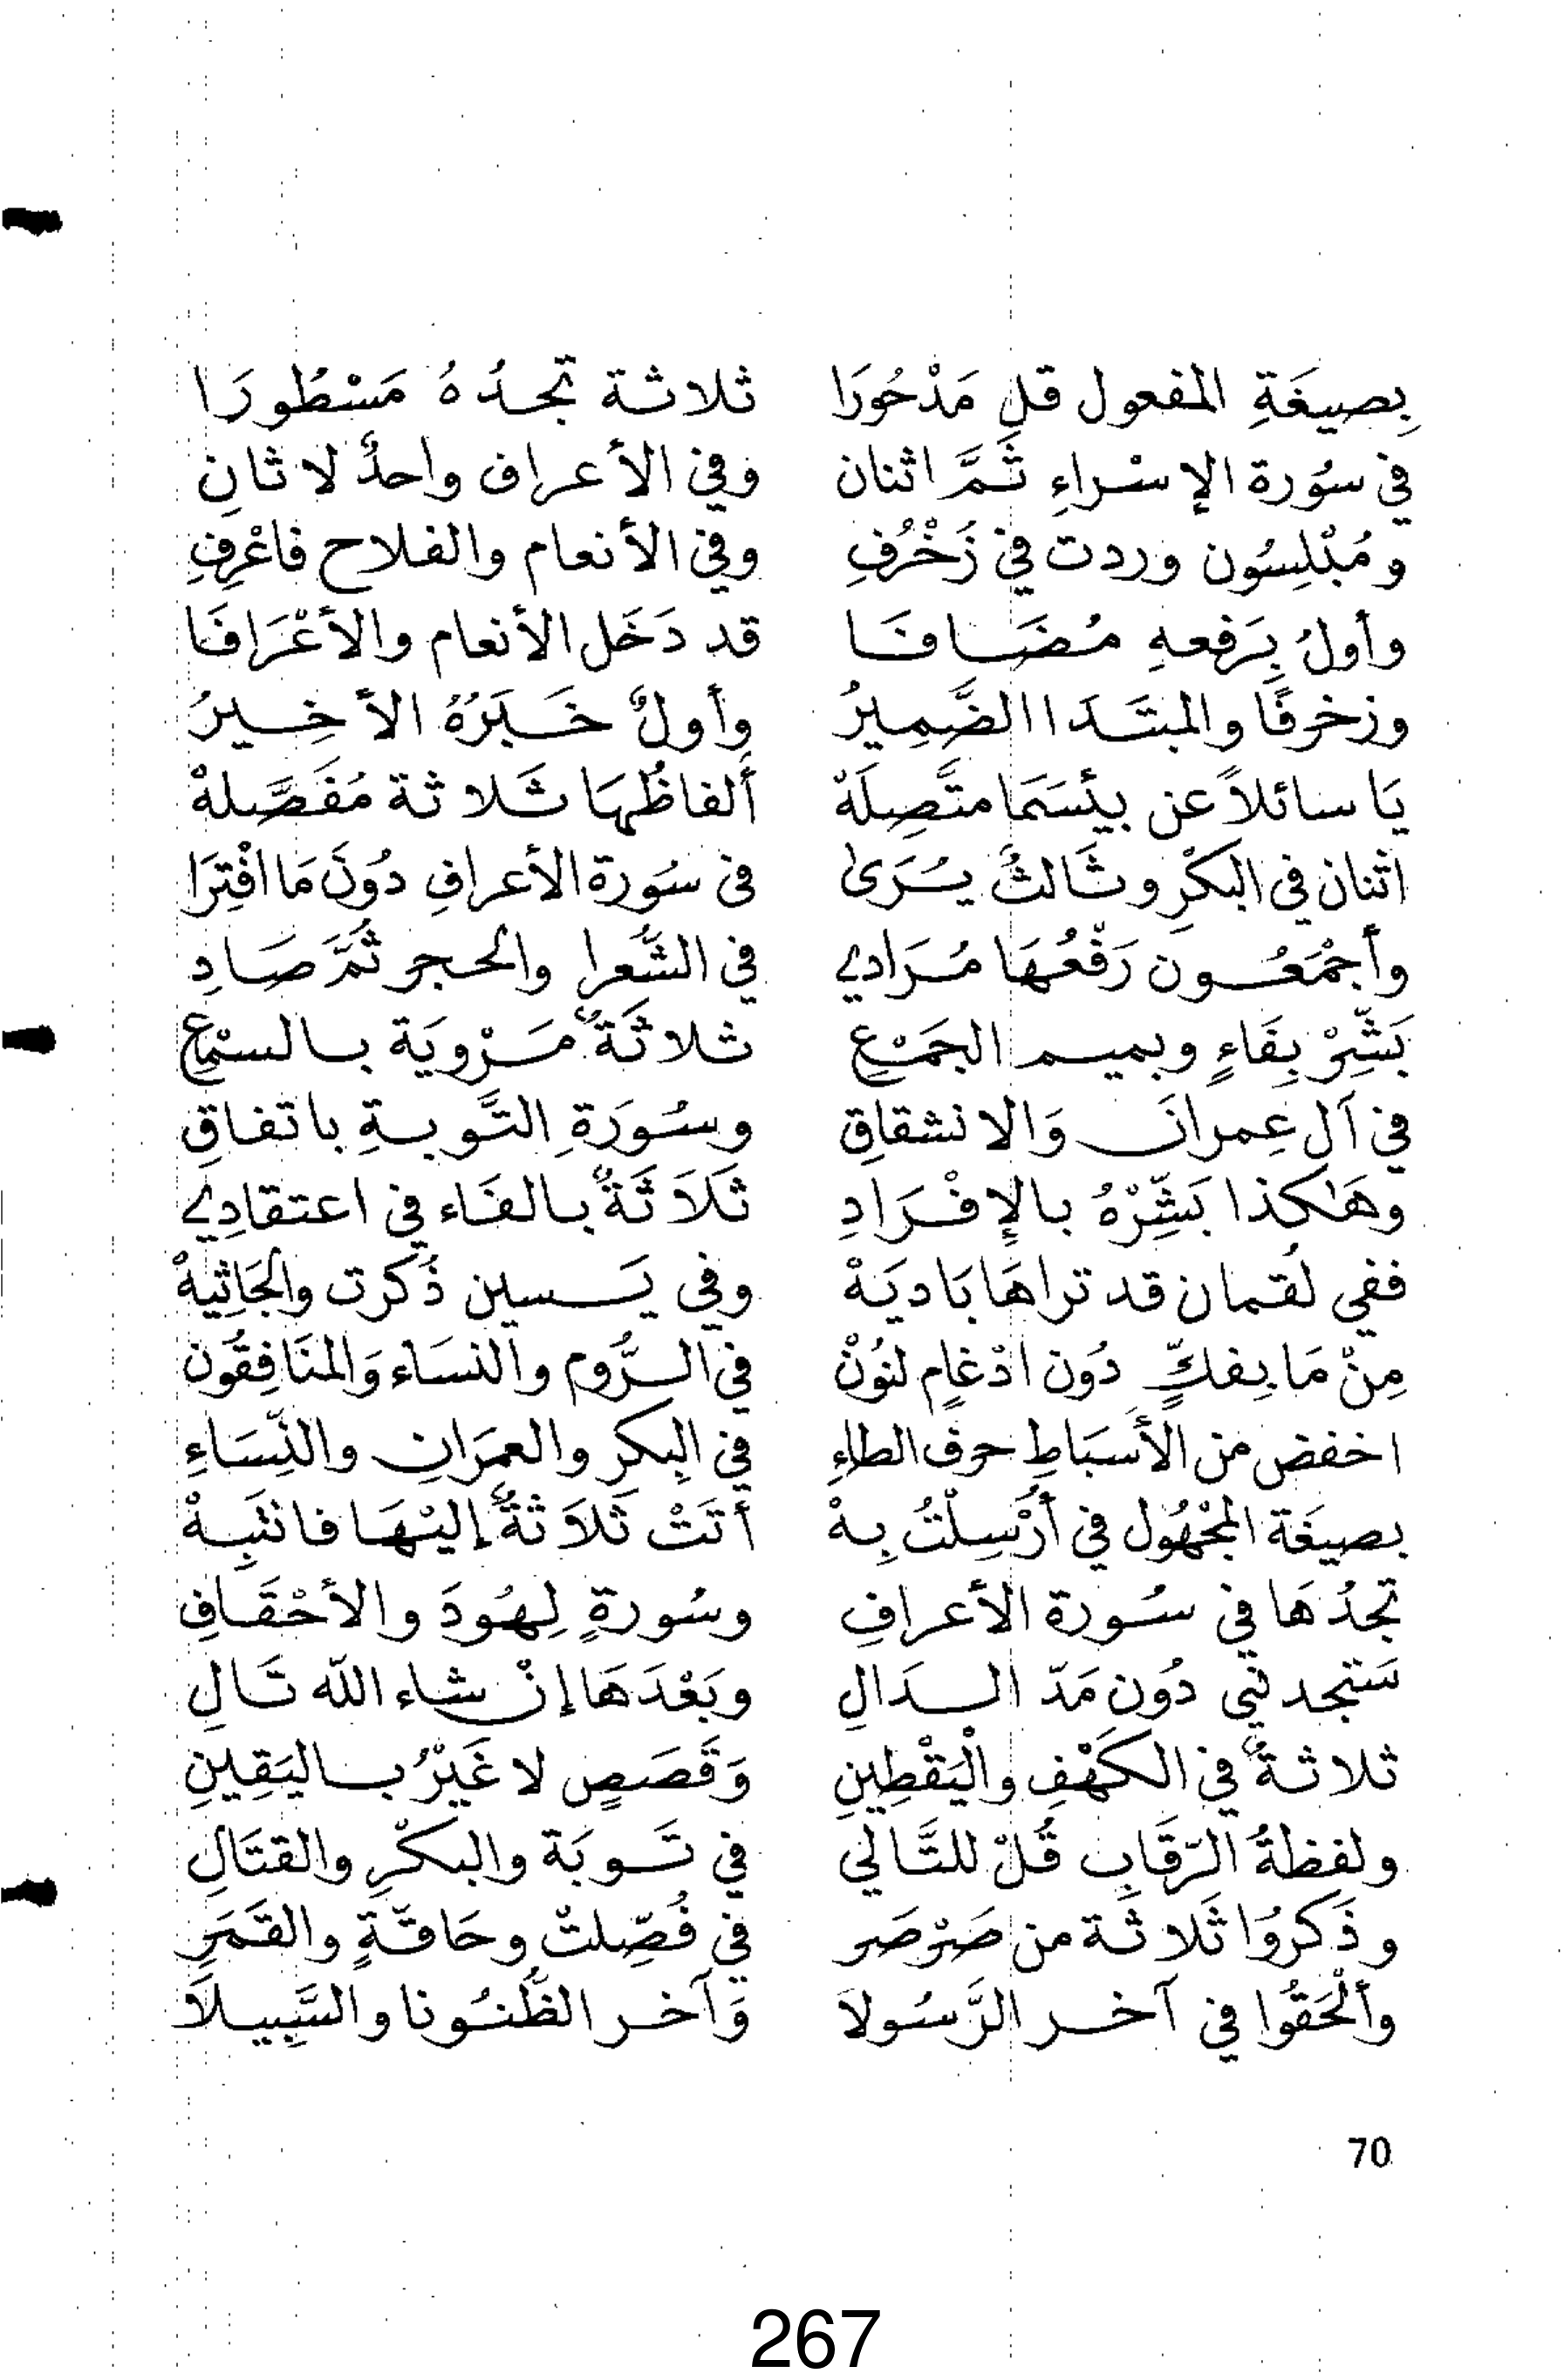 بِصيغَةِ المفعول قل مَدْحُورَا ثلاثة تجدُهُ مَسْطُورَا
في سُورة الإسْراءِ ثَمَّ اثنان وفي الأعراف واحدٌ لا ثانِ
ومُبْلِسُون وردت في زَخْرُفِ وفي الأنعام والفلاح فاعْرِفِ
وأولُ بِرَفعهِ مُضَافَا قد دَخَل الأنعام والأعْرَافَا
وزخرفًا والمبتَدَا الضَّمِيرُ وأولٌ خَبَرُهُ الأخِيرُ
يَا سائلاً عن بيئسَمَا متَّصِلَهْ ألفاظُهَا ثَلاثة مُفَصَّلهْ
اثنان في البكْرِ وثَالثُ يُرَى في سُورة الأعرافِ دُونَ مَا افْتِرَا
وأجْمَعُون رَفْعُهَا مُرَادي في الشُّعرا والحجر ثُمَّ صَادِ
بَشِّرْ بِفَاءٍ وبميم الجَمْعِ ثلاثَةٌ مَرْوِيَة بالسمْعِ
في آل عِمرانَ وَالانشقاقِ وسُورَةِ التَّوبةِ باتفاقِ
وهَاكذا بَشِّرْهُ بالإفْرَادِ ثَلاَثَةٌ بالفَاء في اعتقادِي
ففي لُقمان قد تراهَا بَاديَهْ وفي يَسين ذُكرت والجَاثِيهْ
مِنْ مَا بِفكٍّ دُون ادْغامٍ لنُونْ في الرُّوم والنسَاء وَالمنَافِقُون
اخفض من الأسبَاطِ حرف الطاءِ في البِكرِ والعِمَرَانِ والنِّسَاءِ
بصيغَة المجْهُول في أُرْسِلْتُ بِهْ أتَتْ ثَلاَثَةٌ إليْهَا فانتَبِهْ
تجدُهَا في سُورة الأعرافِ وسُورةٍ لِهُودَ والأحْقَافِ
سَتجدنِي دُون مَدّ الدَالِ وبَعْدَهَا إنْ شاء اللّه تَالِ
ثلاثةٌ في الكَهْفِ والْيَقْطِينِ وَقَصَصٍ لا غَيْرُ باليَقِينِ
ولفظةُ الرّقَابِ قُلْ للتَّالي في تَوبَة والبكْرِ والقتَالِ
وذَكَرُوا ثَلاثَة من صَرْصَر في فُصِّلتْ وحَاقّةٍ والقَمَرِ
وألْحَقُوا في آخر الرَّسُولاَ وَآخر الظُّنُونا والسَّبِيلاَ
70
267